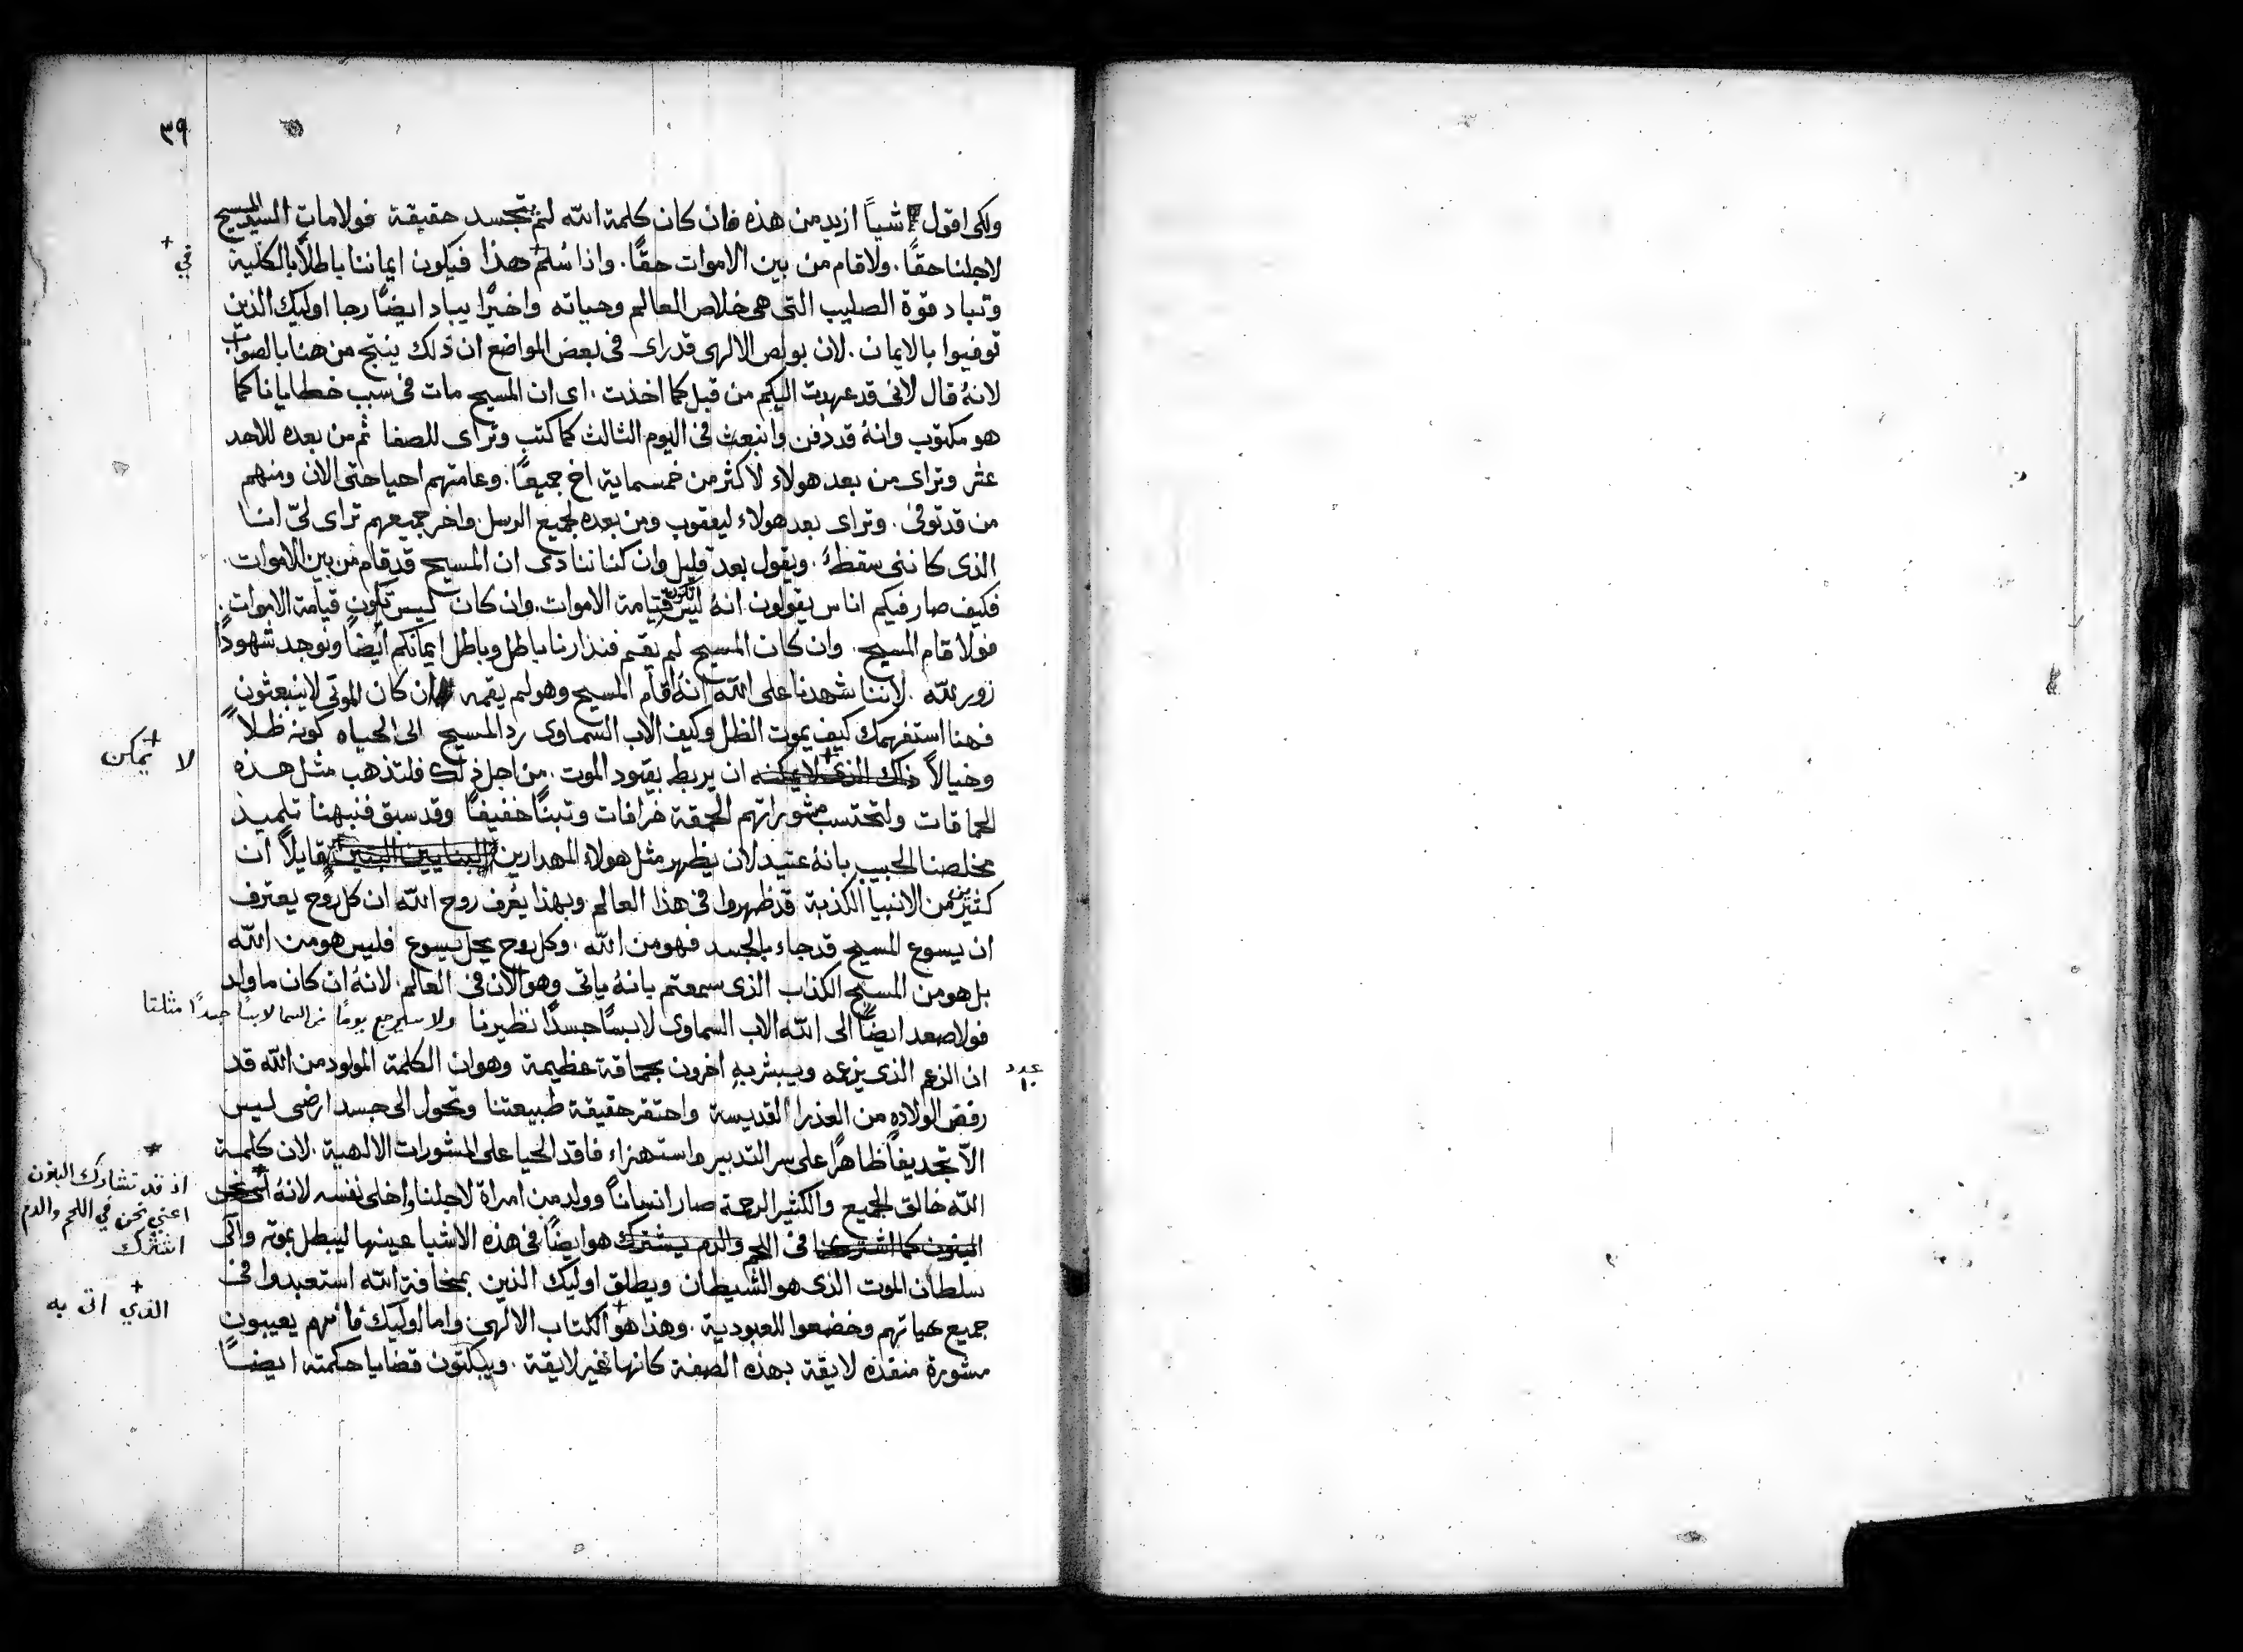 ٣٩
ولكى اقول اشياً ازيد من هذه فان كان كلمة الله لم يتجسد حقيقة فولا مات السيد المسيح
لاجلنا حقًا. ولا قام من بين الاموات حقًا. واذا سُلم + هذا فيكون ايماننا باطلاً بالكلية
في +
وتباد قوة الصليب التى هى خلاص العالم وحياته واخيرًا يباد ايضًا رجا اوليك الذين
توفيوا بالايمان. لان بولص الالهى قد راى فى بعض المواضع ان ذلك ينتج من هنا بالصواب
لانهُ قال لانى قد عهدت اليكم من قبل كما اخذت. اى ان المسيح مات فى سبب خطايانا كما
هو مكتوب وانهُ قد دُفن وانبعث فى اليوم الثالث كما كتب وتراى للصفا ثم من بعده للاحد
عشر وتراى من بعد هولاء لاكثر من خمسماية اخ جميعًا. وعامتهم احيا حتى الان ومنهم
من قد توفى. وتراى بعد هولاء ليعقوب ومن بعده لجميع الرسل واخر جميعهم تراى لىّ انا
الذى كاننى سقطُ. ويقول بعد قليل وان كنا ننادى ان المسيح قد قام من بين الاموات.
فكيف صار فيكم اناس يقولون انهُ ليس تكون قيامة الاموات. وان كان ليس تكون قيامة الاموات
فولا قام المسيح. وان كان المسيح لم يقم فنذارنا باطل وباطل ايمانكم ايضًا ونوجد شهودًا
زور لله. لاننا شهدنا على الله انهُ اقام المسيح وهو لم يقمه ان كان الموتى لا ينبعثون
فهنا استفهمك كيف يموت الظل وكيف الاب السماوى رد المسيح الى الحياه كونه ظلاً
لا + يمكن
وخيالاً ذاك الذى + لا يمكنه ان يربط بقيود الموت. من اجل ذلك فلتذهب مثل هذه
الحماقات ولتحتسب مشوراتهم الحمقة خرافات وتبنًا خفيفًا وقد سبق فنبهنا تلميذ
مخلصنا الحبيب بانهُ عتيد لان يظهر مثل هولاء المهدارين قايلاً ان
كثيرين من الانبيا الكذبة قد ظهروا فى هذا العالم. وبهذا يُعرف روح الله ان كل روح يعترف
ان يسوع المسيح قد جاء بالجسد فهو من الله. وكل روح يحل يسوع فليس هو من الله
بل هو من المسيح الكذاب الذى سمعتم بانهُ ياتى وهو الان فى العالم. لانهُ ان كان ما ولد
فولا صعد ايضًا الى الله الاب السماوى لابسًا جسدًا نظيرنا ولا سيرجع يومًا من السما لابسًا جسدًا مثلنا
عدد ١٠
ان الزعم الذى يزعمه ويبشر به اخرون بحماقة عظيمة وهو ان الكلمة المولود من الله قد
رفض الولاده من العذرا القديسة واحتقر حقيقة طبيعتنا وتحول الى جسد ارضى ليس
الاّ تجديفًا ظاهرًا على سر التدبير واستهزاء فاقد الحيا على المشورات الالهية. لان كلمة
الله خالق الجميع والكثير الرحمة صار انسانًا وولد من امراة لاجلنا واخلى نفسه لانهُ
* اذ قد تشارك البنون
اعنى نحن فى اللحم والدم
اشترك
البنون كما اشتركنا فى اللحم والدم يشترك هو ايضًا فى هذه الاشيا عينها ليبطل بموته والى
سلطان الموت الذى هو الشيطان ويطلق اوليك الذين بمخافة الله استعبدوا فى
+ الذي اتى به
جميع حياتهم وخضعوا للعبودية. وهذا هو + الكتاب الالهى واما اوليك فانهم يعيبون
مشورة منقذه لايقة بهذه الصفة كانها غير لايقة. ويبكتون قضايا حكمته ايضًا